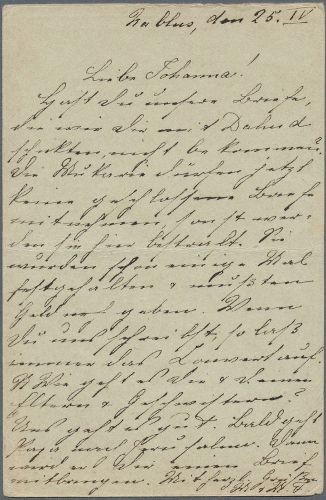 Nablus, den 25. IV
Liebe Johanna!
Hast Du unsere Briefe,
die wir Dir mit Dahud
schikten, nicht bekommen?
Die Mukarie dürfen jetzt
keine geschlossene Briefe
mitnehmen, sonst wer-
den sie hier bestraft. Sie
wurden schon einige Mal
festgehalten & mußten
Geld geben. Wenn
Du uns schreibst, so laß
immer das Couvert auf.
Wie geht es Dir & Deinen
Eltern & Geschwistern?
Uns geht es gut. Bald geht
Papa nach Jerusalem. Dann
werd er Dir einen Brief
mitbringen. Mit herzl.